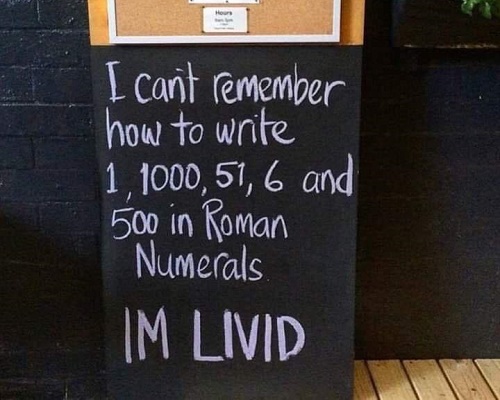 Hours
I can't remember
how to write
1, 1000, 51, 6 and
500 in Roman
Numerals.
IM LIVID